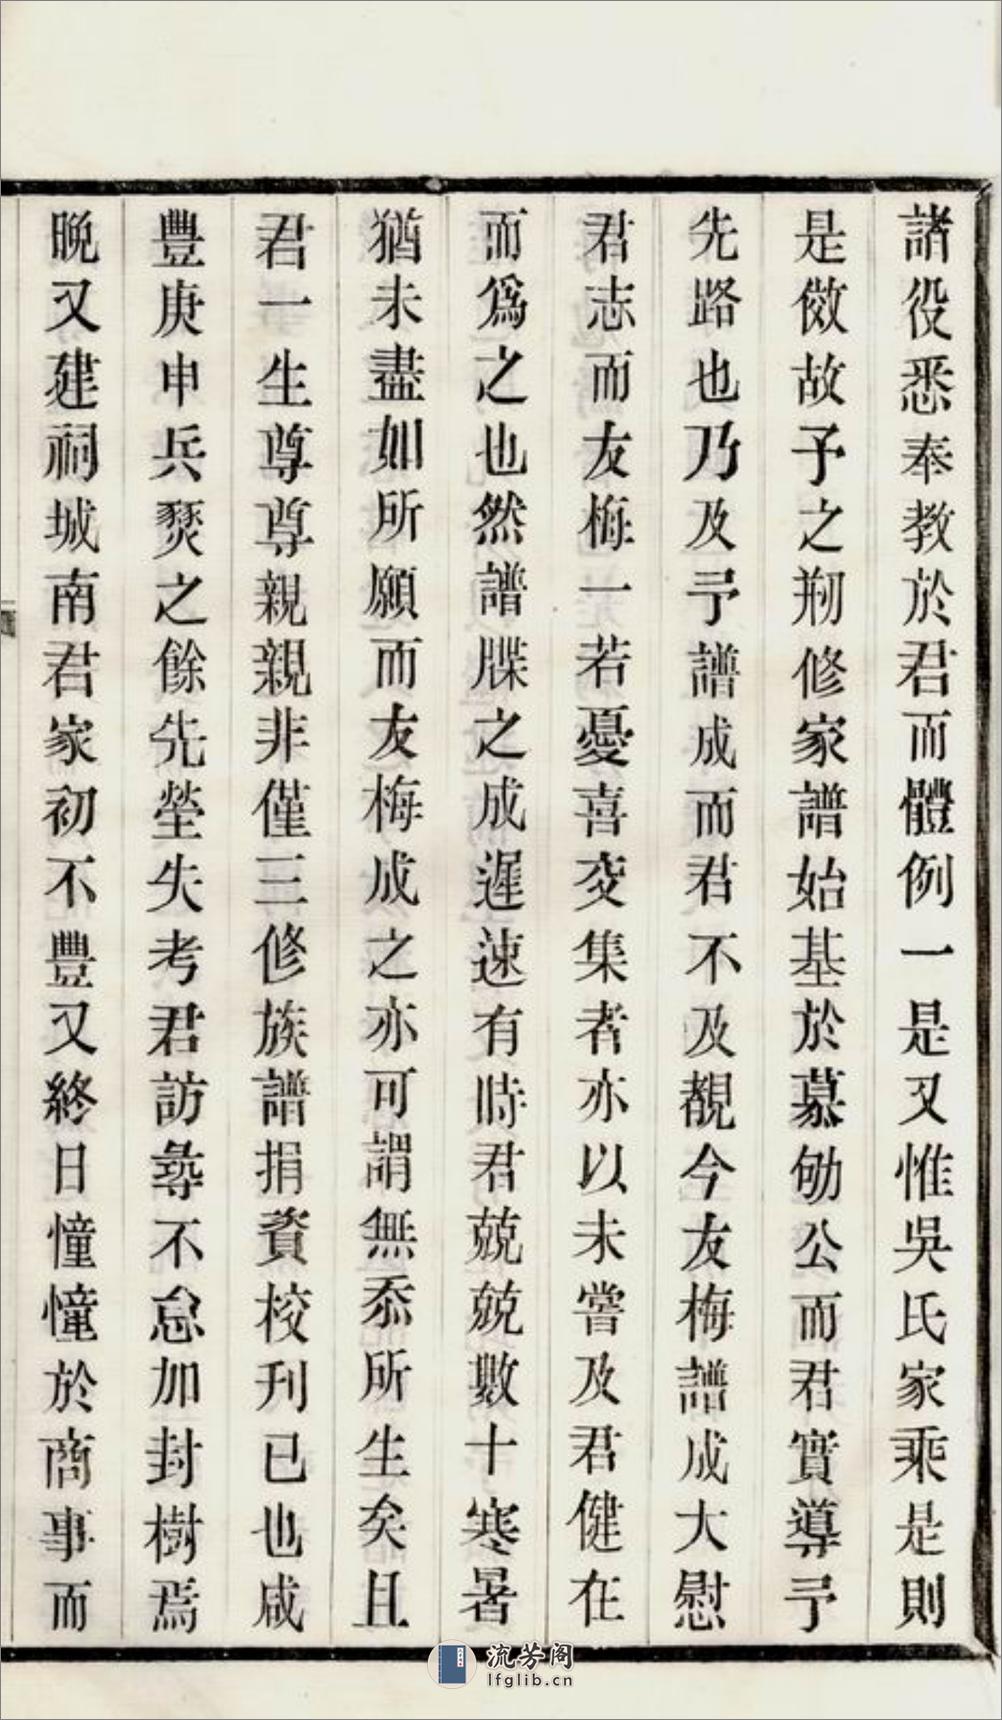 諸役悉奉教於君而體例一是又惟吳氏家乘是則
是倣故予之刱修家譜始基於慕劬公而君實導予
先路也乃及予譜成而君不及覩今友梅譜成大慰
君志而友梅一若憂喜交集者亦以未嘗及君健在
而爲之也然譜牒之成遲速有時君兢兢數十寒暑
猶未盡如所願而友梅成之亦可謂無忝所生矣且
君一生尊尊親親非僅三修族譜捐資校刋已也咸
豐庚申兵燹之餘先塋失考君訪尋不怠加封樹焉
晚又建祠城南君家初不豐又終日憧憧於商事而
流芳阁
lfglib.cn